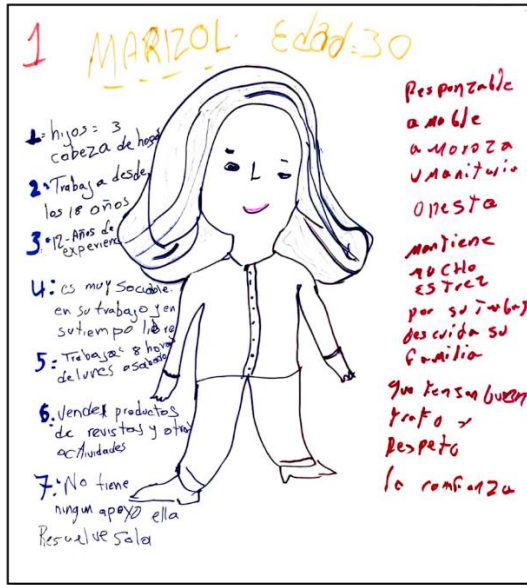 1 MARIZOL. Edad=30
1= hijos= 3
cabeza de hogar
2= Trabaja desde
los 18 años
3= 12-Años de
experienc
4: es muy sociable
en su trabajo y en
su tiempo libre
5= Trabaja= 8 horas
de lunes a sabado
6. Vender productos
de revistas y otras
actividades
7= No tiene
ningun apoyo ella
Resuelve sola
Responzable
amable
amoroza
umanitaria
onesta
mantiene
mucho
estrez
por su trabajo
descuida su
familia
que tengan buen
trato y
Respeto
la confianza